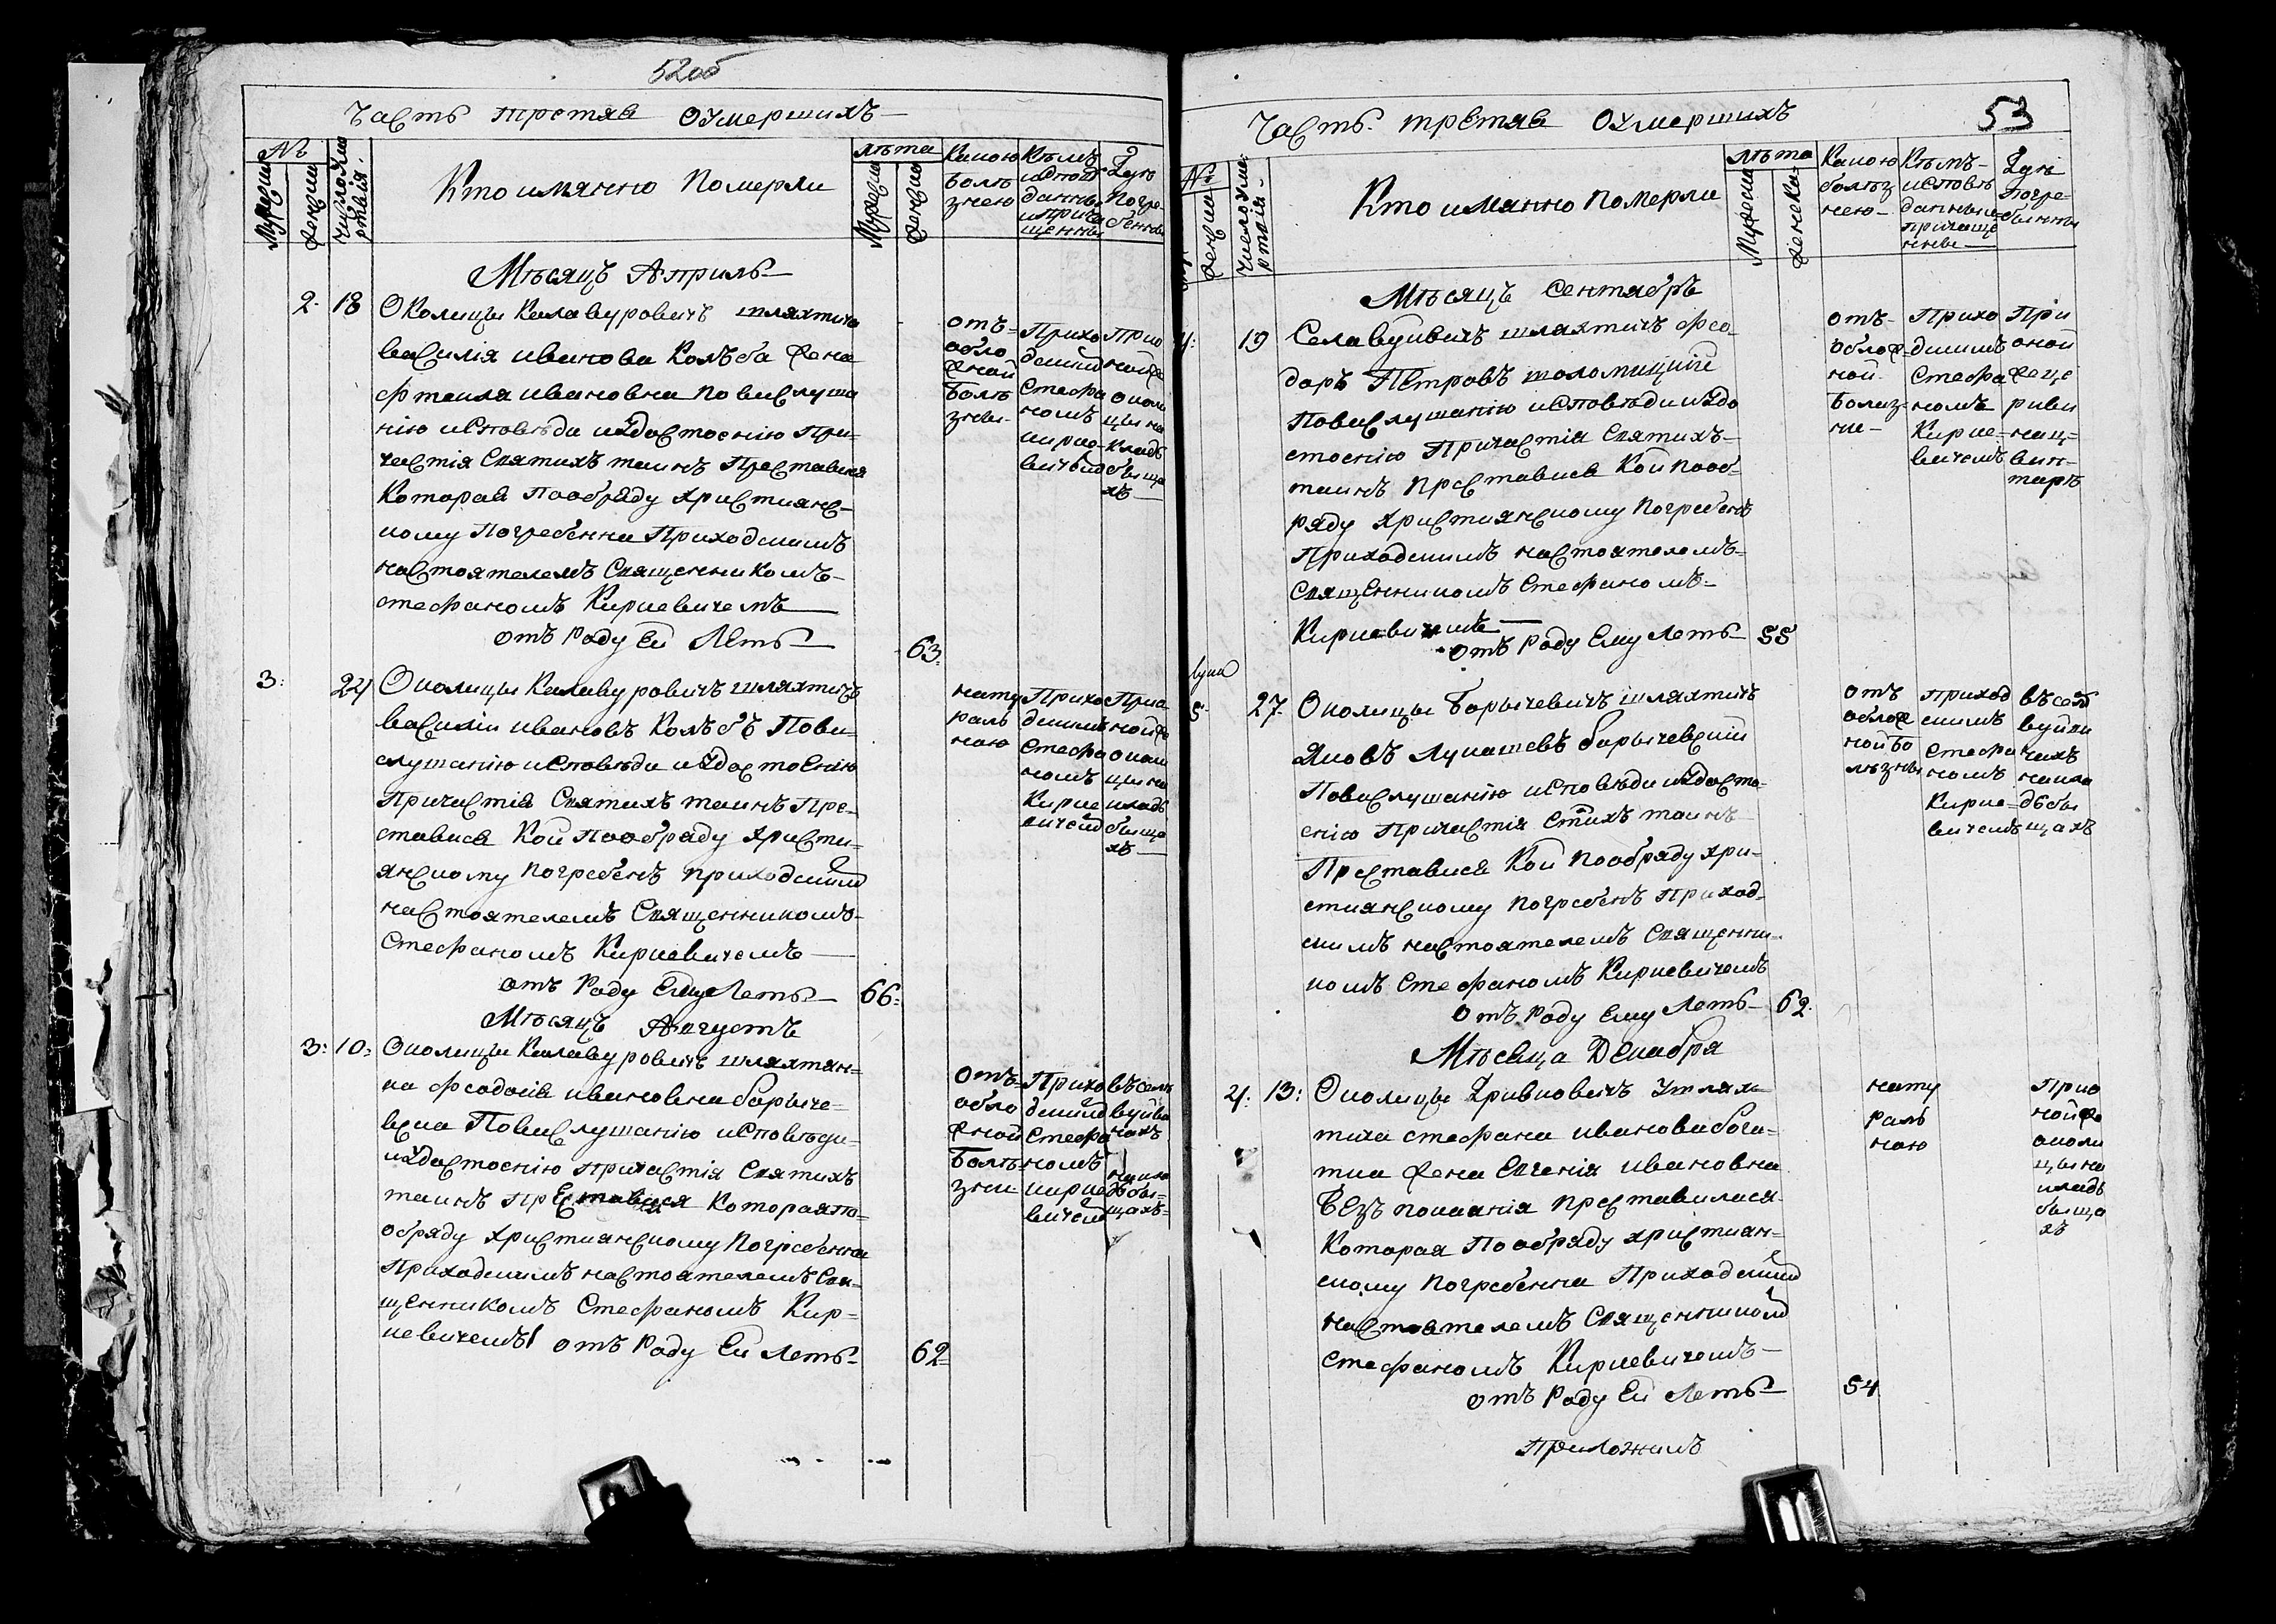 52об
Часть третяя оумершихъ
№
Мужеска
женска
Число уме
ртвія
Кто имянно померли
лѣта
Мужеска
женска
Какою
болѣ
знею
Кѣмъ
исповѣ
данны
и прича
щенны
Гдѣ
погре
бенны
Мѣсяцъ Априль
2. 18 Околицы Калавуровичъ шляхтича
василія иванова Колъба жена
фтекля ивановна по выслуша
нію исповѣди и удостоенію При=
частія Святихъ таинъ Преставися
Которая пообряду християнс=
кому погребенна Приходскимъ
настоятелемъ Священникомъ
стефаномъ Кириевичемъ
отъ Роду Ей Летъ 63.
отъ
обло
жной
болѣ
зны
Прихо
дскимъ
Стефа
номъ
кирие
вичемъ
При о
ной же
околи
цы на
кладъ
быща
хъ
3: 24 Околицы Калавуровичъ шляхтичъ
василій ивановъ Колъбъ Повы
слушанію исповѣди и удостоенію
Причастія Святихъ таинъ Пре=
стависѧ Кой Пообряду христи=
янскому погребенъ приходскимъ
настоятелемъ Священникомъ
Стефаномъ Кириевичемъ
отъ Роду Ему Летъ 66:
нату
раль
ною
Прихо
дскимъ
Стефа
номъ
Кирие
вичемъ
При о
ной же
окол
цы на
кладъ
быща
хъ
Мѣсяцъ Августъ
3: 10: Околицы Калавуровичъ шляхтян=
ка феодосія ивановна борыче=
вска Повыслушанію исповѣди
и удостоенію причастія Святихъ
таинъ преставися Которая по=
обряду християнскому погребенна
Приходскимъ настоятелемъ Свя=
щенникомъ Стефаномъ Кир=
иевичемъ отъ Роду Ей летъ 62
отъ
обло
жной
болѣ
зни
Прихо
дскимъ
Стефа
номъ
кирие
вичемъ
въ селѣ
вуйви
чахъ
на кла
дъбы=
щахъ
53
Часть третяя оумершихъ
№
женска
Число уме
ртвія
Кто имянно померли
лѣта
Мужеска
женска
Какою
болѣз
нею
Кѣмъ
исповѣ
данны и
причаще
нны
Гдѣ
погре=
бынны
Мѣсяцъ Сентябръ
4: 19 Села вуйвичъ шляхтичъ фео=
доръ Петровъ толомицкій
Повыслушанію исповѣди и удо
стоенію Причастія Святихъ
таинъ преставися Кой пооб=
ряду християнскому погребенъ
Приходскимъ настоятелемъ
Священникомъ Стефаномъ
Кириевичемъ
отъ Роду Ему Летъ 55
отъ
облож
ной
болиз
ни
Прихо
дскимъ
Стефа
номъ
Кирие=
вичемъ
При
оной
же це
ркви
на ц=
вин=
таръ
5. 27. Околицы Борычевичъ шляхтичъ
Яковъ Лукашевъ борычевский
Повыслушанію исповѣди и удосто=
енію Причастія Стихъ таинъ
Преставися Кой пообряду хри=
стиянскому погребенъ Приход=
скимъ настоятелемъ Священни=
комъ Стефаномъ Кириевичемъ
отъ Роду Ему Летъ 62.
отъ
облож
ной бо
лѣзны
приход
скимъ
Стефа
номъ
Кирие=
вичемъ
въ селѣ
вуйви
чахъ
на кла
дъбы
щахъ
Мѣсяца Декабря
4: 13: Околицы Гривковичъ Шлях
тича стефана иванова бога=
тка жена Евгенія ивановна
безъ покаянія преставилася
Которая Пообряду християн=
скому погребенна Приходскимъ
настоятелемъ Священникомъ
стефаномъ Кириевичемъ
отъ Роду Ей Летъ 54
нату
раль
ною
При о
ной же
околи
цы на
кладъ
быща
хъ
Приложилъ